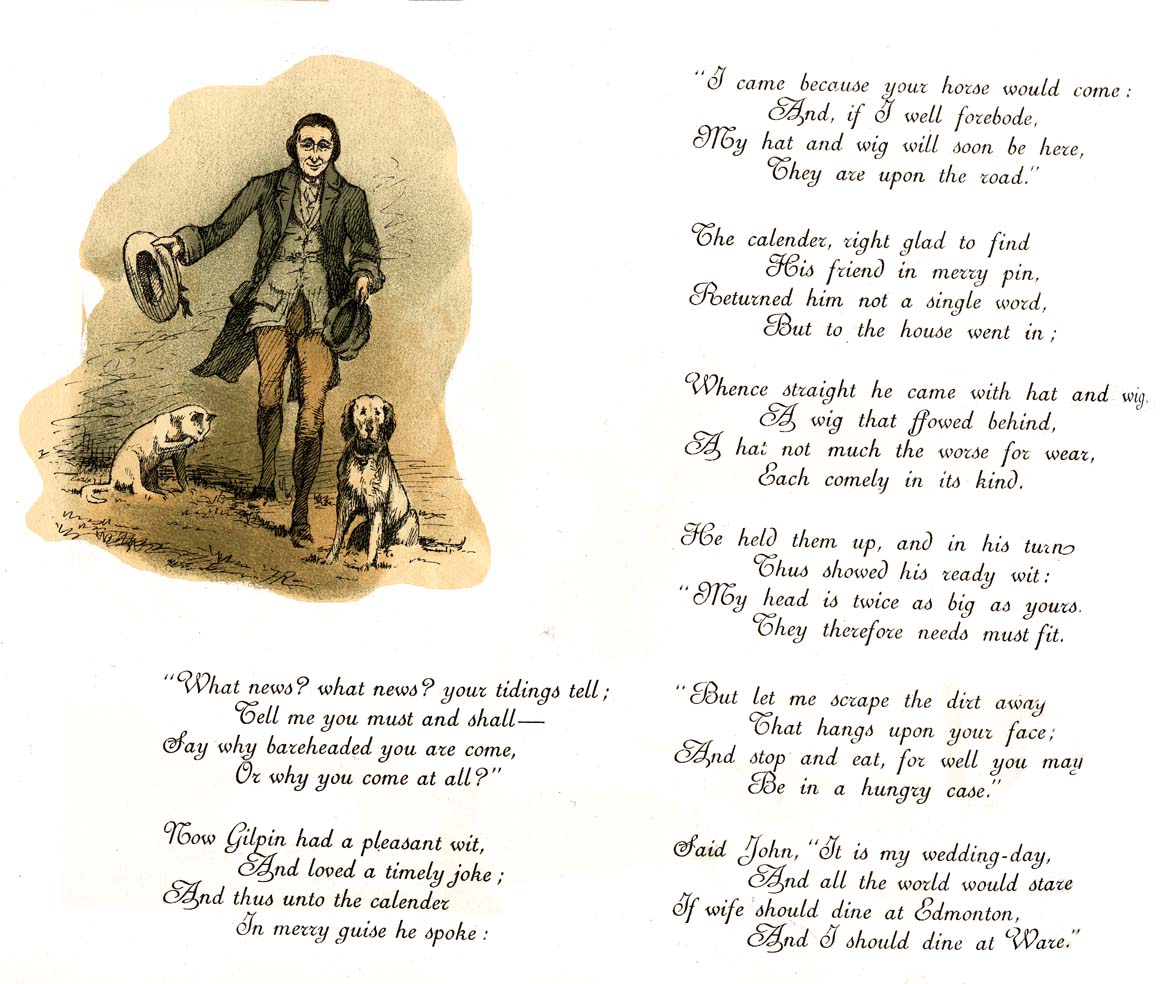 "What news? what news? your tidings tell;
Tell me you must and shall—
Say why bareheaded you are come,
Or why you come at all?"
Now Gilpin had a pleasant wit,
And loved a timely joke;
And thus unto the calender
In merry guise he spoke:
"I came because your horse would come:
And, if I well forebode,
My hat and wig will soon be here,
They are upon the road."
The calender, right glad to find
His friend in merry pin,
Returned him not a single word,
But to the house went in;
Whence straight he came with hat and wig.
A wig that flowed behind,
A hat not much the worse for wear,
Each comely in its kind.
He held them up, and in his turn
Thus showed his ready wit:
"My head is twice as big as yours.
They therefore needs must fit.
"But let me scrape the dirt away
That hangs upon your face;
And stop and eat, for well you may
Be in a hungry case."
Said John, "It is my wedding-day,
And all the world would stare
If wife should dine at Edmonton,
And I should dine at Ware."